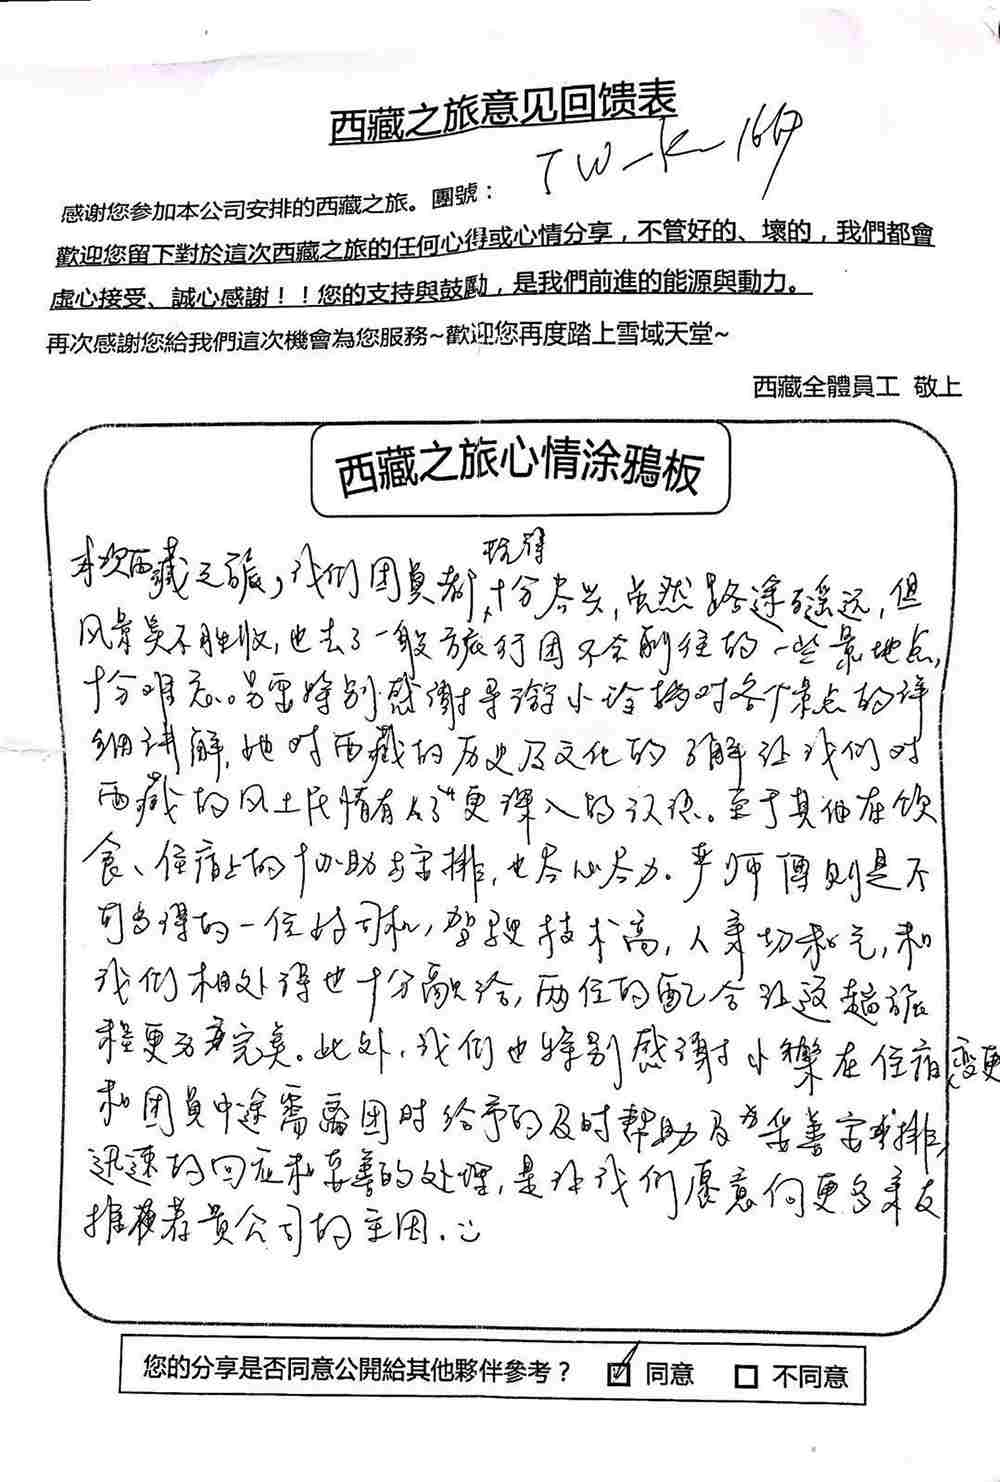 西藏之旅意见回馈表
感谢您参加本公司安排的西藏之旅。團號： TW-K-1667
歡迎您留下對於這次西藏之旅的任何心得或心情分享，不管好的、壞的，我們都會
虛心接受、誠心感謝！！您的支持與鼓勵，是我們前進的能源與動力。
再次感謝您給我們這次機會為您服務~歡迎您再度踏上雪域天堂~
西藏全體員工 敬上
西藏之旅心情涂鴉板
本次西藏之旅，我们团員都玩得十分尽兴，虽然路途遥远，但
风景美不胜收，也去了一般旅行团不会前往的一些景地点，
十分难忘。另需特别感谢导游小玲对各个景点的详
细讲解，她对西藏的历史及文化的了解让我们对
西藏的风土民情有了更深入的认识。至于其他在饮
食、住宿上的协助与安排，也尽心尽力。严师傅则是不
可多得的一位好司机，驾驶技术高，人亲切和气，和
我们相处得也十分融洽，两位的配合让这趟旅
程更为完美。此外，我们也特别感谢小樂在住宿变更
和团員中途需离团时给予的及时帮助及妥善安排，
迅速的回应和妥善的处理，是让我们愿意向更多亲友
推荐贵公司的主因。
您的分享是否同意公開給其他夥伴參考？ ☑ 同意 □ 不同意